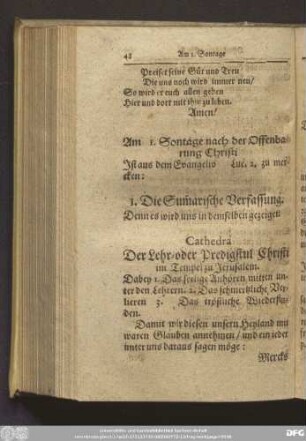 48 Am 1. Sontage
Preiset seine Güt und Treu
Die uns noch wird immer neu/
So wird er euch allen geben
Hier und dort mit ihm zu leben.
Amen/
Am 1. Sontage nach der Offenba
rung Christi
Ist aus dem Evangelio Luc. 2. zu mer
cken:
1. Die Sum̃arische Verfassung.
Denn es wird uns in demselben gezeiget
Cathedra
Der Lehr-oder Predigstul Christi
im Tempel zu Jerusalem.
Dabey 1. Das fleißige Anhören mitten un
ter den Lehrern. 2. Das schmertzliche Ver
lieren 3. Das tröstliche Wiederfin
den.
Damit wir diesen unsern Heyland mit
waren Glauben annehmen/ und ein ieder
unter uns daraus sagen möge:
Mercks